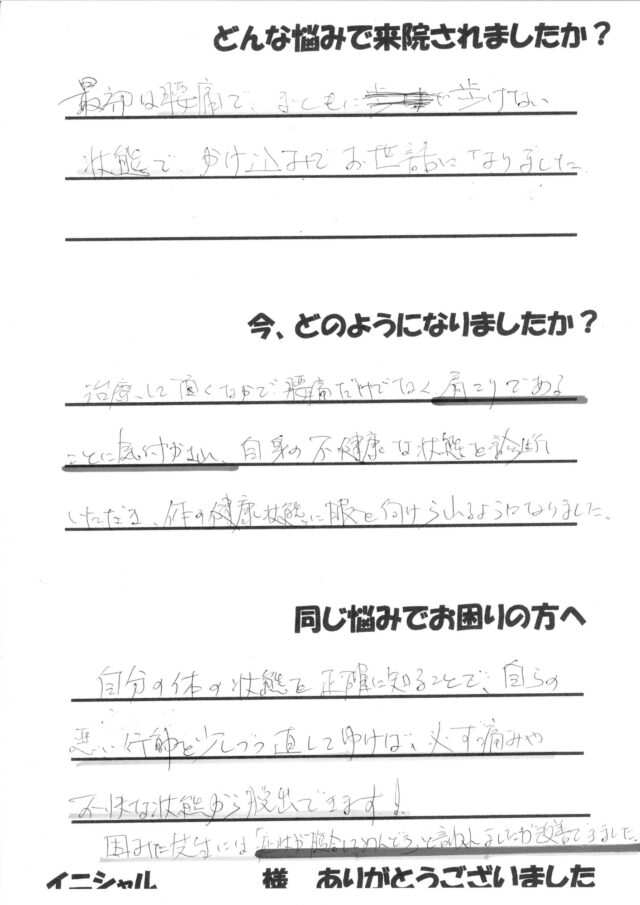 どんな悩みで来院されましたか？
最初は腰痛で、まともに歩けない
状態で、かけ込みでお世話になりました
今、どのようになりましたか？
治療して頂くなかで腰痛だけでなく肩こりである
ことに気付かされ、自身の不健康な状態を診断
いただき、体の健康状態に眼を向けられるようになりました。
同じ悩みでお困りの方へ
自分の体の状態を正確に知ることで、自らの
悪い行動を少しづつ直してゆけば、必ず痛みや
不快な状態から脱出できます！
因みに先生には「症状が複合してめんどう」と言われましたが改善できました。
イニシャル 様 ありがとうございました